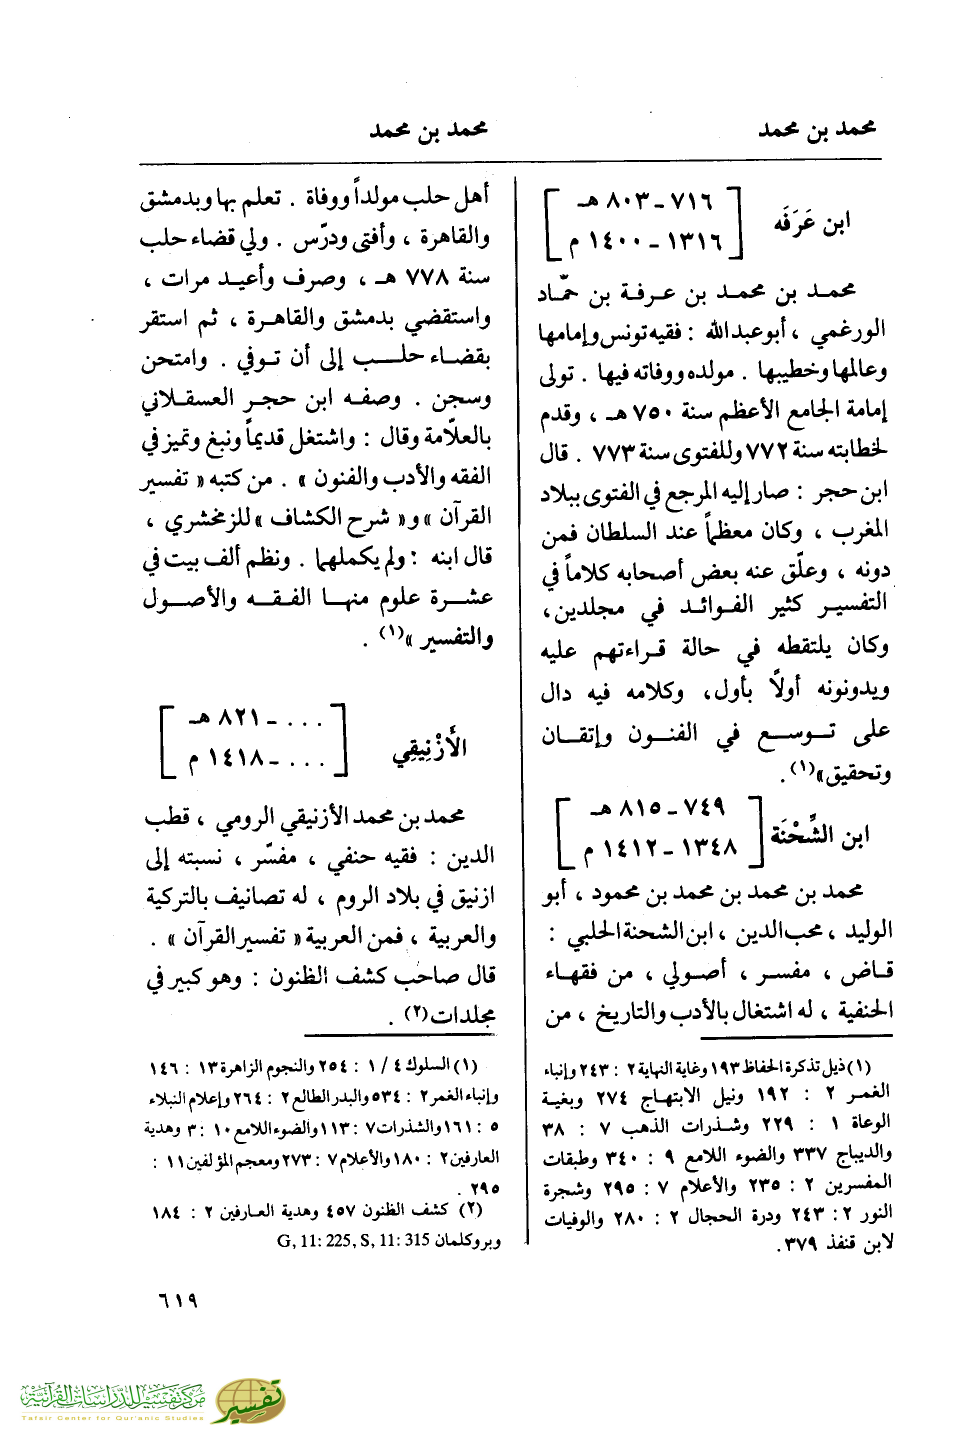 محمد بن محمد
محمد بن محمد
ابن عَرَفَه
٧١٦ - ٨٠٣ هـ
١٣١٦ - ١٤٠٠ م
محمد بن محمد بن عرفة بن حمّاد
الورغمي ، أبو عبد الله : فقيه تونس وإمامها
وعالمها وخطيبها . مولده ووفاته فيها . تولى
إمامة الجامع الأعظم سنة ٧٥٠ هـ ، وقدم
لخطابته سنة ٧٧٢ وللفتوى سنة ٧٧٣ . قال
ابن حجر : صار إليه المرجع في الفتوى ببلاد
المغرب ، وكان معظماً عند السلطان فمن
دونه ، وعلّق عنه بعض أصحابه كلاماً في
التفسير كثير الفوائد في مجلدين،
وكان يلتقطه في حالة قراءتهم عليه
ويدونونه أولاً بأول، وكلامه فيه دال
على توسع في الفنون وإتقان
وتحقيق»(١).
ابن الشِّحْنَة
٧٤٩ - ٨١٥ هـ
١٣٤٨ - ١٤١٢ م
محمد بن محمد بن محمد بن محمود ، أبو
الوليد ، محب الدين ، ابن الشحنة الحلبي :
قاض ، مفسر ، أصولي ، من فقهاء
الحنفية ، له اشتغال بالأدب والتاريخ ، من
(١) ذيل تذكرة الحفاظ ١٩٣ وغاية النهاية ٢ : ٢٤٣ وإنباء
الغمر ٢ : ١٩٢ ونيل الابتهاج ٢٧٤ وبغية
الوعاة ١ : ٢٢٩ وشذرات الذهب ٧ : ٣٨
والديباج ٣٣٧ والضوء اللامع ٩ : ٣٤٠ وطبقات
المفسرين ٢ : ٢٣٥ والأعلام ٧ : ٢٩٥ وشجرة
النور ٢ : ٢٤٣ ودرة الحجال ٢ : ٢٨٠ والوفيات
لابن قنفذ ٣٧٩.
أهل حلب مولداً ووفاة . تعلم بها وبدمشق
والقاهرة ، وأفتى ودرّس . ولي قضاء حلب
سنة ٧٧٨ هـ ، وصرف وأعيد مرات ،
واستقضي بدمشق والقاهرة ، ثم استقر
بقضاء حلب إلى أن توفي . وامتحن
وسجن . وصفه ابن حجر العسقلاني
بالعلاّمة وقال : واشتغل قديماً ونبغ وتميز في
الفقه والأدب والفنون » . من كتبه « تفسير
القرآن » و« شرح الكشاف » للزمخشري ،
قال ابنه : ولم يكملهما . ونظم ألف بيت في
عشرة علوم منها الفقه والأصول
والتفسير »(١) .
الأَزْنِيقِي
... - ٨٢١ هـ
... - ١٤١٨ م
محمد بن محمد الأزنيقي الرومي ، قطب
الدين : فقيه حنفي ، مفسّر ، نسبته إلى
ازنيق في بلاد الروم ، له تصانيف بالتركية
والعربية ، فمن العربية « تفسير القرآن » .
قال صاحب كشف الظنون : وهو كبير في
مجلدات(٢) .
(١) السلوك ٤ / ١ : ٢٥٤ والنجوم الزاهرة ١٣ : ١٤٦
وإنباء الغمر ٢ : ٥٣٤ والبدر الطالع ٢ : ٢٦٤ وإعلام النبلاء
٥ : ١٦١ والشذرات ٧ : ١١٣ والضوء اللامع ١٠ : ٣ وهدية
العارفين ٢ : ١٨٠ والأعلام ٧ : ٢٧٣ ومعجم المؤلفين ١١ :
٢٩٥ .
(٢) كشف الظنون ٤٥٧ وهدية العارفين ٢ : ١٨٤
وبروكلمان G, 11: 225, S, 11: 315
٦١٩
مركز تفسير للدراسات القرآنية
Tafsir Center for Qur'anic Studies
تفسير